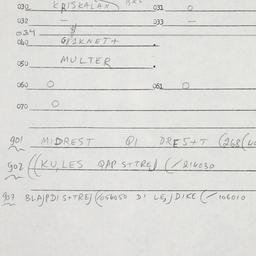 030 KRISKALAX 031 O
032 — 033 —
034
040 GISKNET+ .
050 MULTER .
060 O 061 O
070 O
901 MIDREST QI DRES+T (268(
902 ((KU,LES QAP S++REJ (/214030
903 BLAJPDI S++REJ (056050 DI LEJ DIKE (/106010